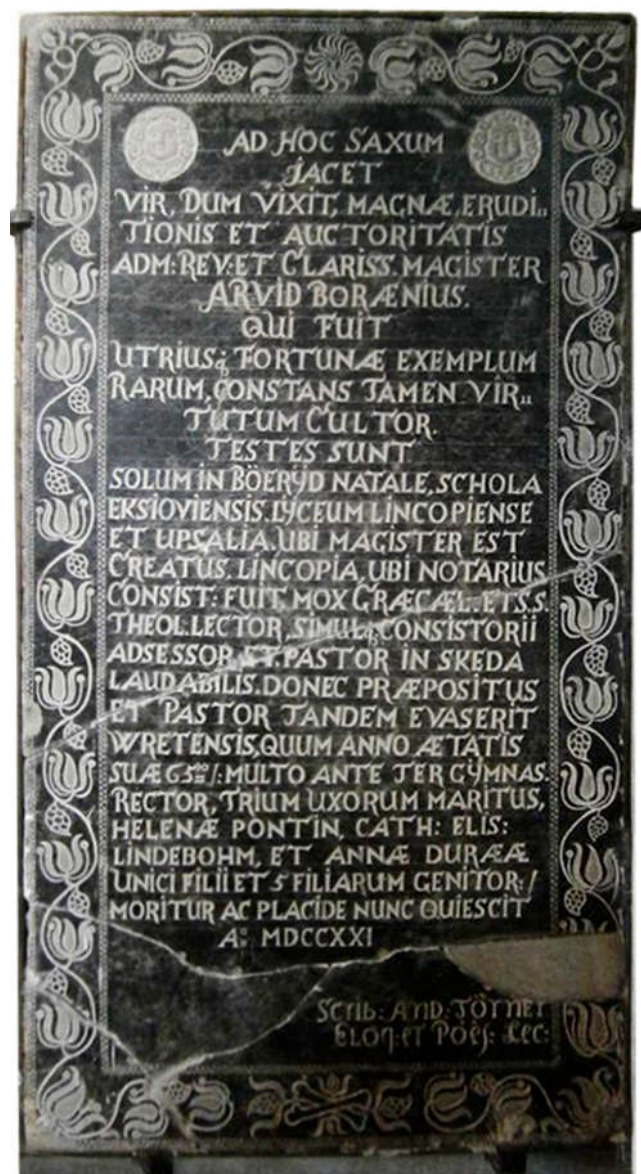 AD HOC SAXUM
JACET
VIR, DUM VIXIT, MAGNÆ, ERUDI„
TIONIS ET AUCTORITATIS
ADM: REV: ET CLARISS. MAGISTER
ARVID BORÆNIUS.
QUI FUIT
UTRIUSq; FORTUNÆ EXEMPLUM
RARUM, CONSTANS TAMEN VIR„
TUTUM CULTOR.
TESTES SUNT
SOLUM IN BÖERŸD NATALE, SCHOLA
EKSIOVIENSIS. LŸCEUM LINCOPIENSE
ET UPSALIA. UBI MAGISTER EST
CREATUS. LINCOPIA, UBI NOTARIUS
CONSIST: FUIT, MOX GRÆCÆ L. ET S.S.
THEOL. LECTOR, SIMULq; CONSISTORII
ADSESSOR ET PASTOR IN SKEDA
LAUDABILIS. DONEC PRÆPOSITUS
ET PASTOR TANDEM EVASERIT
WRETENSIS, QUUM ANNO ÆTATIS
SUÆ 65 /: MULTO ANTE TER GŸMNAS.
RECTOR, TRIUM UXORUM MARITUS,
HELENÆ PONTIN, CATH: ELIS:
LINDEBOHM, ET ANNÆ DURÆÆ
UNICI FILII ET 5 FILIARUM GENITOR: /
MORITUR AC PLACIDE NUNC QUIESCIT
Aº MDCCXXI
Scrib: AND: TÖRNER
ELOq: et Poës: Lec: